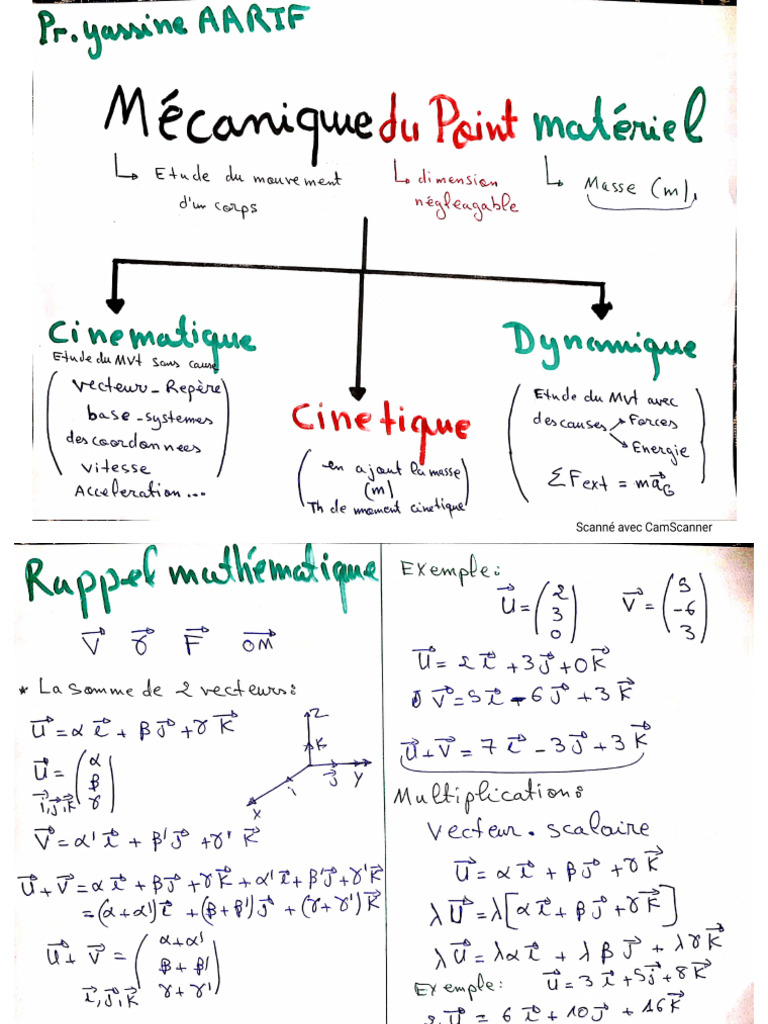 Pr. yassine AARIF
Mécanique du Point matériel
↳ Etude du mouvement d'un corps
↳ dimension négleagable
↳ Masse (m),
Cinematique
Etude du MVt sans cause
vecteur_Repère
base_systemes
des coordonnees
vitesse
Acceleration...
Cinetique
en ajout la masse
(m)
Th de moment cinetique
Dynamique
Etude du MVt avec
des causes → Forces
→ Energie
ΣF ext = m a⃗G
Scanné avec CamScanner
Rappel mathématique
V⃗ γ⃗ F⃗ OM⃗
* La somme de 2 vecteurs:
U⃗ = α i⃗ + β j⃗ + γ K⃗
U⃗ = (α β γ)
i⃗, j⃗, K⃗
Z
K
i
j
y
x
V⃗ = α' i⃗ + β' j⃗ + γ' K⃗
U⃗ + V⃗ = α i⃗ + β j⃗ + γ K⃗ + α' i⃗ + β' j⃗ + γ' K⃗
= (α + α') i⃗ + (β + β') j⃗ + (γ + γ') K⃗
U⃗ + V⃗ = (α + α' β + β' γ + γ')
i⃗, j⃗, K⃗
Exemple:
U⃗ = (2 3 0) V⃗ = (5 -6 3)
U⃗ = 2 i⃗ + 3 j⃗ + 0 K⃗
V⃗ = 5 i⃗ - 6 j⃗ + 3 K⃗
U⃗ + V⃗ = 7 i⃗ - 3 j⃗ + 3 K⃗
Multiplication:
vecteur . scalaire
U⃗ = α i⃗ + β j⃗ + γ K⃗
λ U⃗ = λ [α i⃗ + β j⃗ + γ K⃗]
λ U⃗ = λ α i⃗ + λ β j⃗ + λ γ K⃗
Exemple: U⃗ = 3 i⃗ + 5 j⃗ + 8 K⃗
2 U⃗ = 6 i⃗ + 10 j⃗ + 16 K⃗